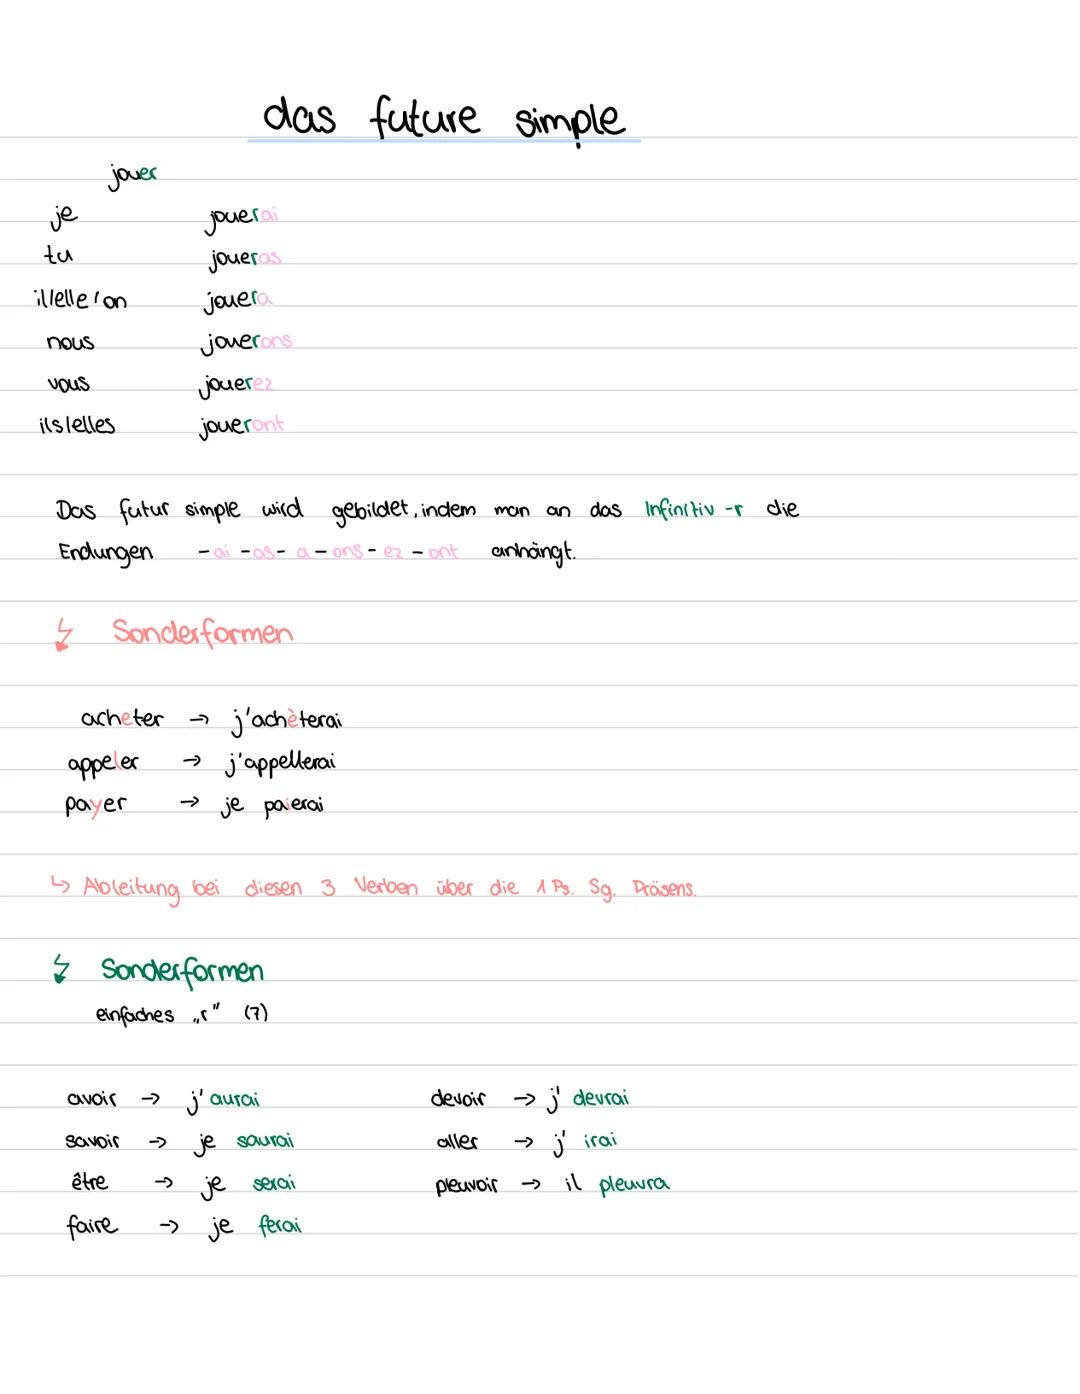 das future simple
jouer
je jouerai
tu joueras
il/elle/on jouera
nous jouerons
vous jouerez
ils/elles joueront
Das futur simple wird gebildet, indem man an das Infinitiv -r die
Endungen -ai -as- a - ons - ez - ont anhängt.
Sonderformen
acheter → j'achèterai
appeler → j'appellerai
payer → je paierai
↳ Ableitung bei diesen 3 Verben über die 1 Ps. Sg. Präsens.
Sonderformen
einfaches „r" (7)
avoir → j'aurai
savoir → je saurai
être → je serai
faire → je ferai
devoir → j' devrai
aller → j' irai
pleuvoir → il pleuvra